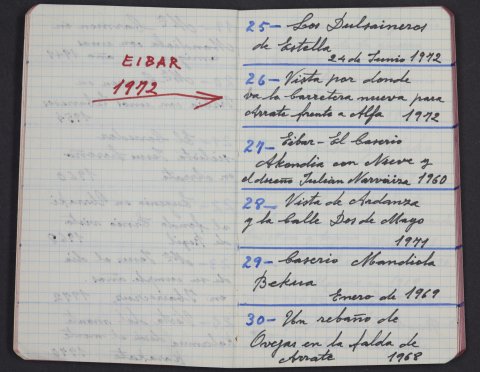 EIBAR
1972
25 - Los Dulsaineros
de Estella
24 de Junio 1972
26 - Vista por donde
va la Carretera nueva para
Arrate frente a Alfa 1972
27 - Eibar - El Caserio
Akondia con Nieve y
el dueño Julian Narvaiza 1960
28 - Vista de Ardanza
y la Calle Dos de Mayo
1971
29 - Caserio Mandiola
Bekua
Enero de 1969
30 - Un rebaño de
Ovejas en la falda de
Arrate 1968